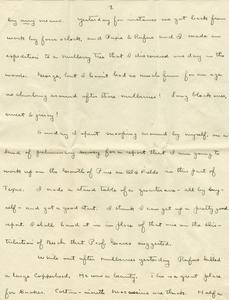 2
by any means. Yesterday for instance we got back from
work by four o'clock, and Pupie & Rufus and I made an
expedition to a mulberry tree that I discovered one day in the
woods. George, but I hadn't had so much fun for an age
as climbing around after those mulberries! Long black ones,
sweet & juicy!
Sunday I spent snooping around by myself, on a
kind of preliminary survey for a report that I am going to
work up on the Growth of Pine on Old Fields in this part of
Texas. I made a stand table of a quarter acre - all by my-
self - and got a good start. I think I can get up a pretty good
report. I shall hand it in in place of that one on the Dis-
tribution of Beech that Prof. suggested.
While out after mulberries yesterday Rufus killed
a large Copperhead. He was a beauty. This is a great place
for snakes. Cotton-mouth Moccasins are thick. Half a